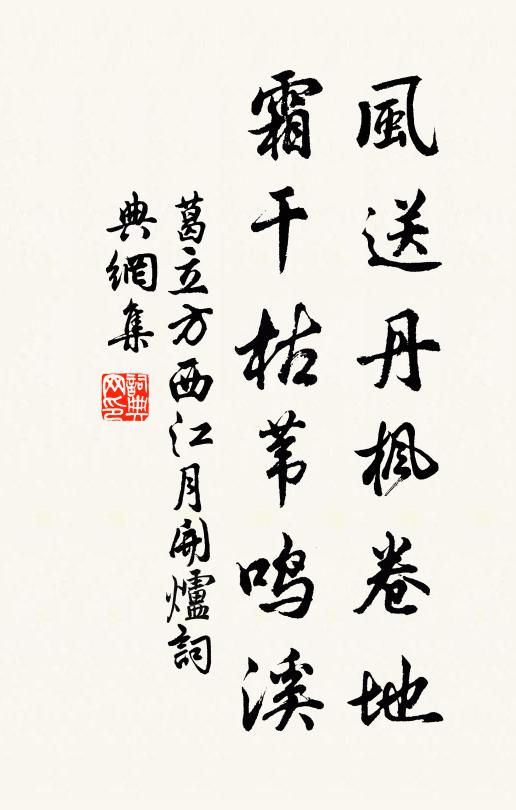 風送丹楓卷地
霜干枯苇鸣溪
葛立方西江月開爐詞
典網集
詞典网印